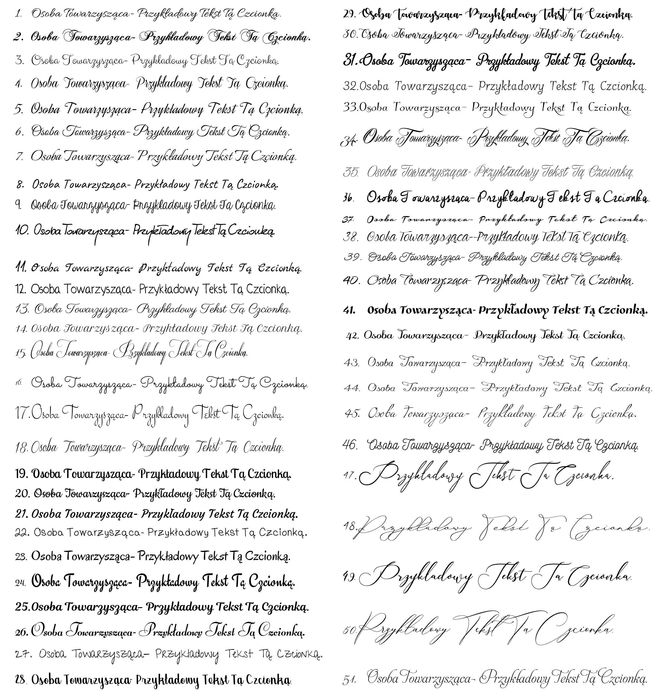 1. Osoba Towarzysząca- Przykładowy Tekst Tą Czcionką.
2. Osoba Towarzysząca- Przykładowy Tekst Tą Czcionką.
3. Osoba Towarzysząca- Przykładowy Tekst Tą Czcionką.
4. Osoba Towarzysząca- Przykładowy Tekst Tą Czcionką.
5. Osoba Towarzysząca- Przykładowy Tekst Tą Czcionką.
6. Osoba Towarzysząca- Przykładowy Tekst Tą Czcionką.
7. Osoba Towarzysząca- Przykładowy Tekst Tą Czcionką.
8. Osoba Towarzysząca- Przykładowy Tekst Tą Czcionką.
9. Osoba Towarzysząca- Przykładowy Tekst Tą Czcionką.
10. Osoba Towarzysząca- Przykładowy Tekst Tą Czcionką.
11. Osoba Towarzysząca- Przykładowy Tekst Tą Czcionką.
12. Osoba Towarzysząca- Przykładowy Tekst Tą Czcionką.
13. Osoba Towarzysząca- Przykładowy Tekst Tą Czcionką.
14. Osoba Towarzysząca- Przykładowy Tekst Tą Czcionką.
15. Osoba Towarzysząca- Przykładowy Tekst Tą Czcionka.
16. Osoba Towarzysząca- Przykładowy Tekst Tą Czcionką.
17. Osoba Towarzysząca- Przykładowy Tekst Tą Czcionką.
18. Osoba Towarzysząca- Przykładowy Tekst Tą Czcionką.
19. Osoba Towarzysząca- Przykładowy Tekst Tą Czcionką.
20. Osoba Towarzysząca- Przykładowy Tekst Tą Czcionką.
21. Osoba Towarzysząca- Przykładowy Tekst Tą Czcionką.
22. Osoba Towarzysząca- Przykładowy Tekst Tą Czcionką.
23. Osoba Towarzysząca- Przykładowy Tekst Tą Czcionką.
24. Osoba Towarzysząca- Przykładowy Tekst Tą Czcionką.
25. Osoba Towarzysząca- Przykładowy Tekst Tą Czcionką.
26. Osoba Towarzysząca- Przykładowy Tekst Tą Czcionką.
27. Osoba Towarzysząca- Przykładowy Tekst Tą Czcionką.
28. Osoba Towarzysząca- Przykładowy Tekst Tą Czcionką.
29. Osoba Towarzysząca- Przykładowy Tekst Tą Czcionką.
30. Osoba Towarzysząca- Przykładowy Tekst Tą Czcionką.
31. Osoba Towarzysząca- Przykładowy Tekst Tą Czcionką.
32. Osoba Towarzysząca- Przykładowy Tekst Tą Czcionką.
33. Osoba Towarzysząca- Przykładowy Tekst Tą Czcionką.
34. Osoba Towarzysząca- Przykładowy Tekst Tą Czcionką.
35. Osoba Towarzysząca- Przykładowy Tekst Tą Czcionką.
36. Osoba Towarzysząca- Przykładowy Tekst Tą Czcionką.
37. Osoba Towarzysząca- Przykładowy Tekst Tą Czcionką.
38. Osoba Towarzysząca- Przykładowy Tekst Tą Czcionką.
39. Osoba Towarzysząca- Przykładowy Tekst Tą Czcionką.
40. Osoba Towarzysząca- Przykładowy Tekst Tą Czcionką.
41. Osoba Towarzysząca- Przykładowy Tekst Tą Czcionką.
42. Osoba Towarzysząca- Przykładowy Tekst Tą Czcionką.
43. Osoba Towarzysząca- Przykładowy Tekst Tą Czcionką.
44. Osoba Towarzysząca- Przykładowy Tekst Tą Czcionką.
45. Osoba Towarzysząca- Przykładowy Tekst Tą Czcionką.
46. Osoba Towarzysząca- Przykładowy Tekst Tą Czcionką.
47. Przykladowy Tekst Ta Czcionka.
48. Przykladowy Tekst Tą Czcionką.
49. Przykladowy Tekst Ta Czcionka.
50. Przykladowy Tekst Ta Czcionka.
51. Osoba Towarzysząca- Przykładowy Tekst Tą Czcionką.